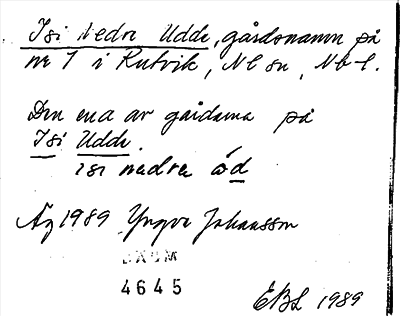 Isi Nedre Udde, gårdsnamn på
nr 7 i Rutvik, Nl sn, Nb-l.
Den ena av gårdarna på
Isi Udde.
isi nedre ód
Äg 1989 Yngve Johansson
DAUM
4645
EBL 1989